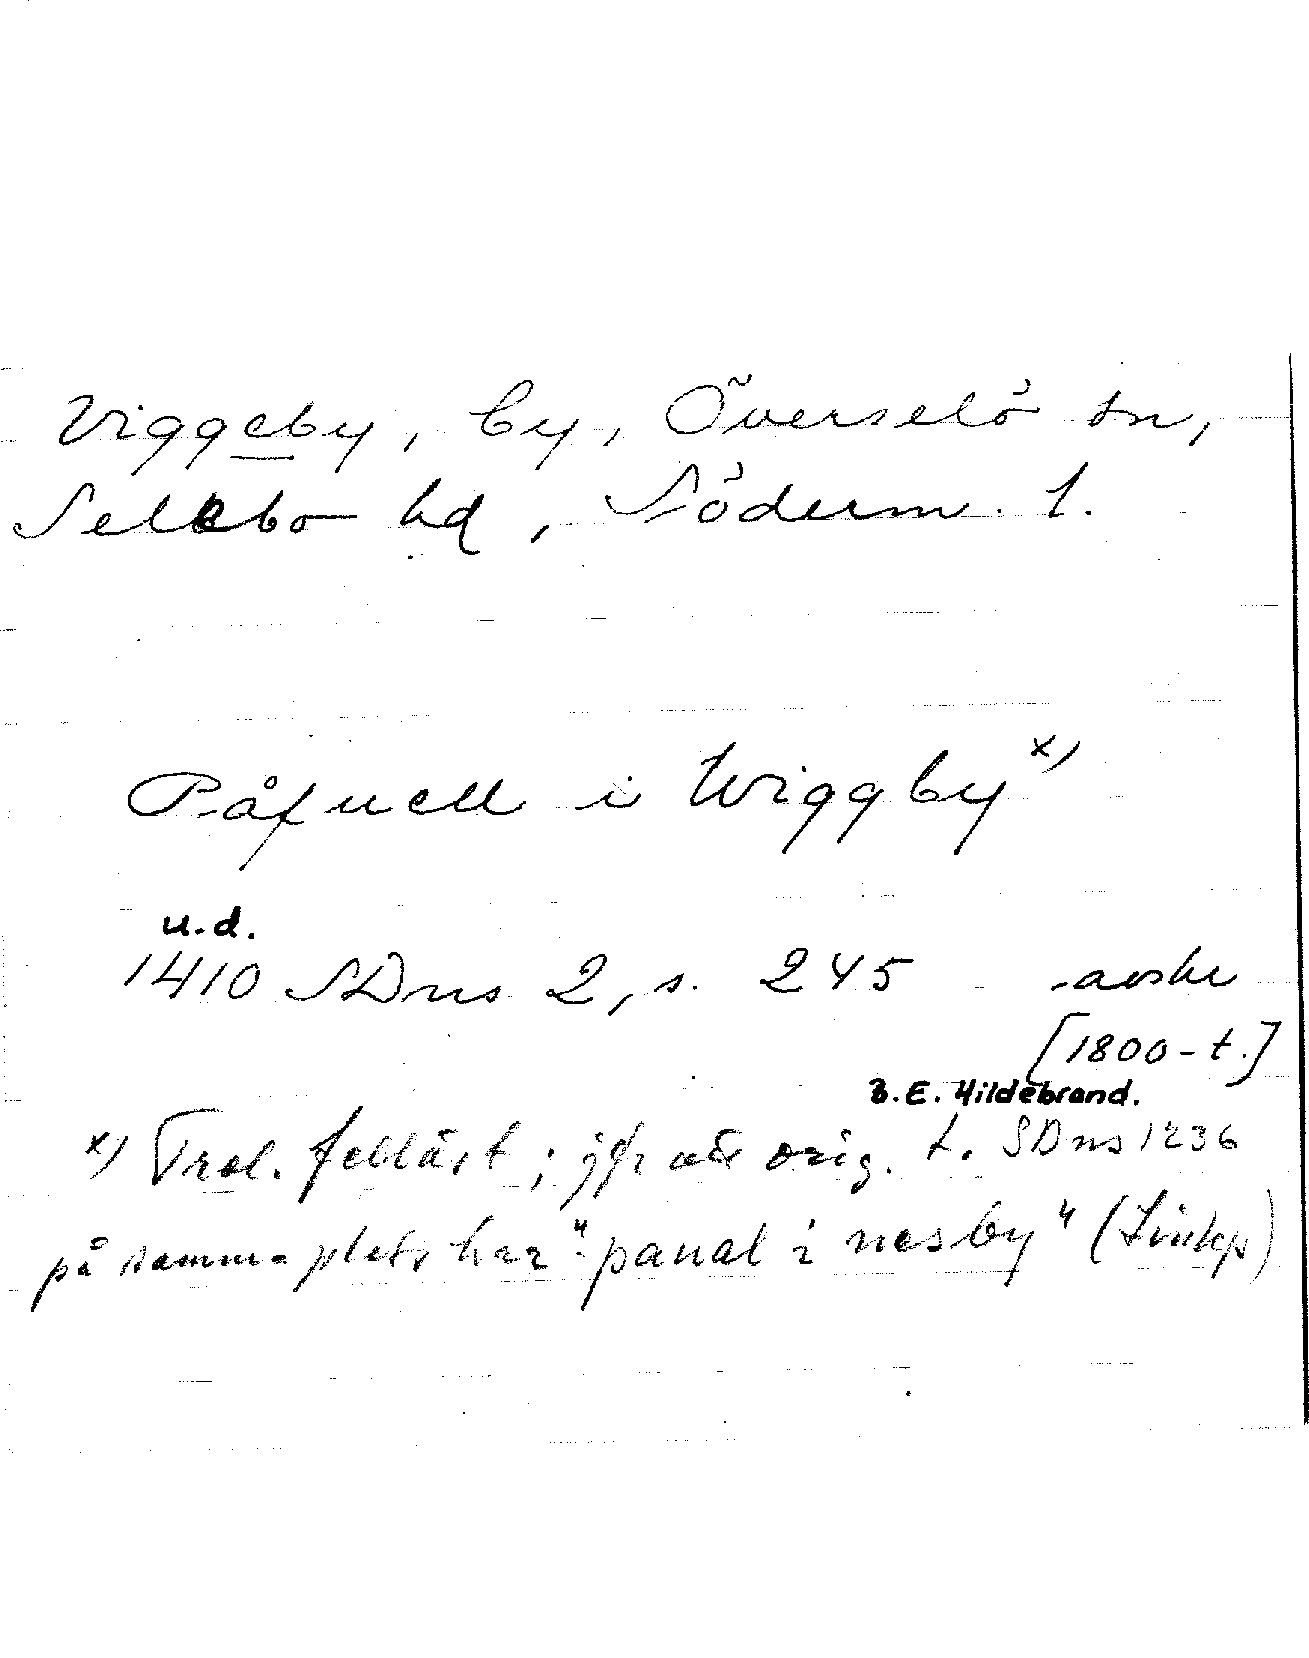 Viggeby, by, Överselö sn,
Selebo hd, Söderm. l.
Påfuell i Wiggby x)
u.d.
1410 SDns 2, s. 245 avskr
[1800-t.]
B.E. Hildebrand.
x) Trol. felläst; jfr att orig. t. SDns 1236
på samma plats har "panal i nesby" (Linkp)